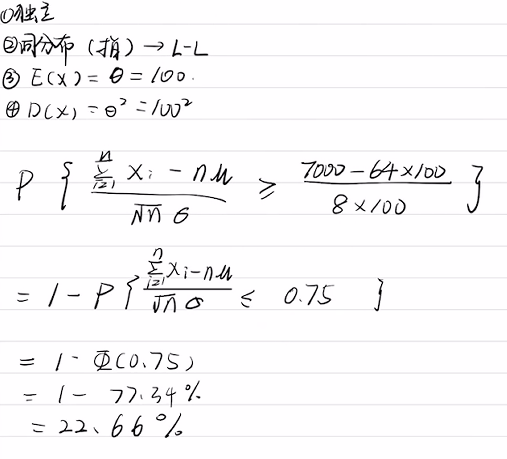 ①独立
②同分布（指）→ L-L
③ E(X) = θ = 100.
④ D(X) = θ² = 100²
P { (∑_{i=1}^{n} Xi - nμ) / (√n σ) ≥ (7000 - 64×100) / (8×100) }
= 1 - P { (∑_{i=1}^{n} Xi - nμ) / (√n σ) ≤ 0.75 }
= 1 - Φ(0.75)
= 1 - 77.34%
= 22.66%